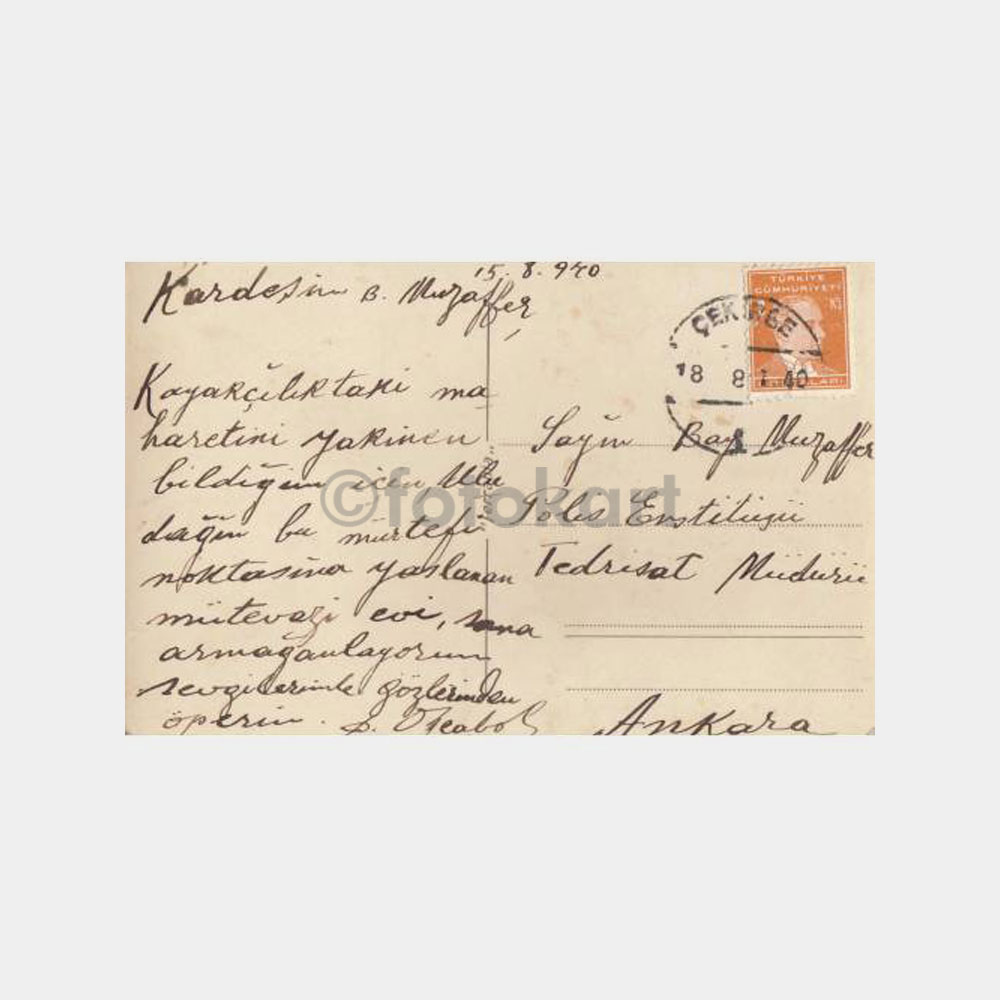 15. 8. 940
Kardeşim B. Muzaffer,
Kayakçılıktaki ma
haretini yakinen
bildiğim için Ulu
dağın bu mürtefi
noktasına yaslanan
mütevazi evi, sana
armağanlayorum
sevgilerimle gözlerinden
öperim.
TÜRKİYE
CÜMHURİYETİ
ÇEKİRGE
18 8 40
1
Sayın Bay Muzaffer
Polis Enstitüsü
Tedrisat Müdürü
Ankara
©fotokart